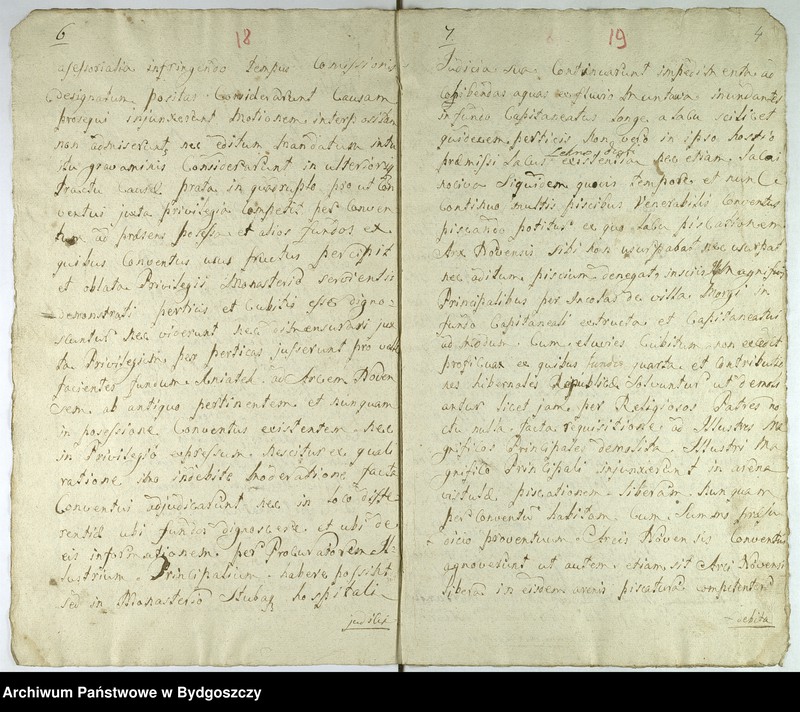 6 18
assessorialia infringendo tempus Comissionis
designatum positus Considerarunt Causam
prosequi injunxerunt Motionem interpositam
non admiserunt nec editum Mandatum intu
itu gravaminis Considerarunt in ulteriori
tractu Causae prata in quadruplo pro ut Con
ventui juxta privilegia Competit per Conven
tum ad praesens possessa et alios fundos ex
quibus Conventus usus fructus percipit
et oblata Privilegii Monasterio servientis
demonstrati perticis et Cubitis esse digno-
scuntur nec viderunt nec dismensurari jux
ta Privilegium per perticas jusserunt pro
facientes fundum Kniatek ad Arcem Noven
sem ab antiquo pertinentem et nunquam
in possessione Conventus existentem nec
in Privilegio expressum Nescitur ex quali
ratione imo indebite Moderatione facta
Conventui adjudicarunt nec in loco diffe-
rentiae ubi fundi dignoscere et ubi de
eis informationem per Procuratorem Il-
lustrium Principalium habere possint
sed in Monasterio Stubaq hospitali
judicia
7 19 4
Judicia sua Continuarunt impedimenta ad
cohibendas aquas ex fluvio Muntawa inundantes
in fundo Capitaneatus longe a lacu scilicet
quidecem perticis non vero in ipso hostio
praemissi Lacus existentia nec etiam Lacui
nociva Siquidem quovis tempore et nunc
Continuo multis piscibus Venerabilis Conventus
piscando potitur ex quo Lacu piscationem
Arx Novensis sibi non usurpabat nec usurpat
nec aditum piscium denegat insciis Magnificis
Principalibus per Incolas de villa Morgi in
fundo Capitaneali extructa et Capitaneatui
ad modum Cum eluvies Cubitum non excedit
proficua ex quibus fundis quarta et Contributio
nes hibernales Reipublicae Solvuntur ut demoli
antur licet jam per Religiosos Patres no
ctu nulla facta requisitione ad Illustres Ma
gnificos Principales demolita Illustri Ma
gnifico Principali injunxerunt in arena
vistulae piscationem liberam nunquam
per Conventum habitam Cum Summo praeju
dicio proventuum Arcis Novensis Conventui
agnoverunt ut autem etiam sit Arci Novensi
libera in eisdem arenis piscatura competenter
debita
Archiwum Państwowe w Bydgoszczy